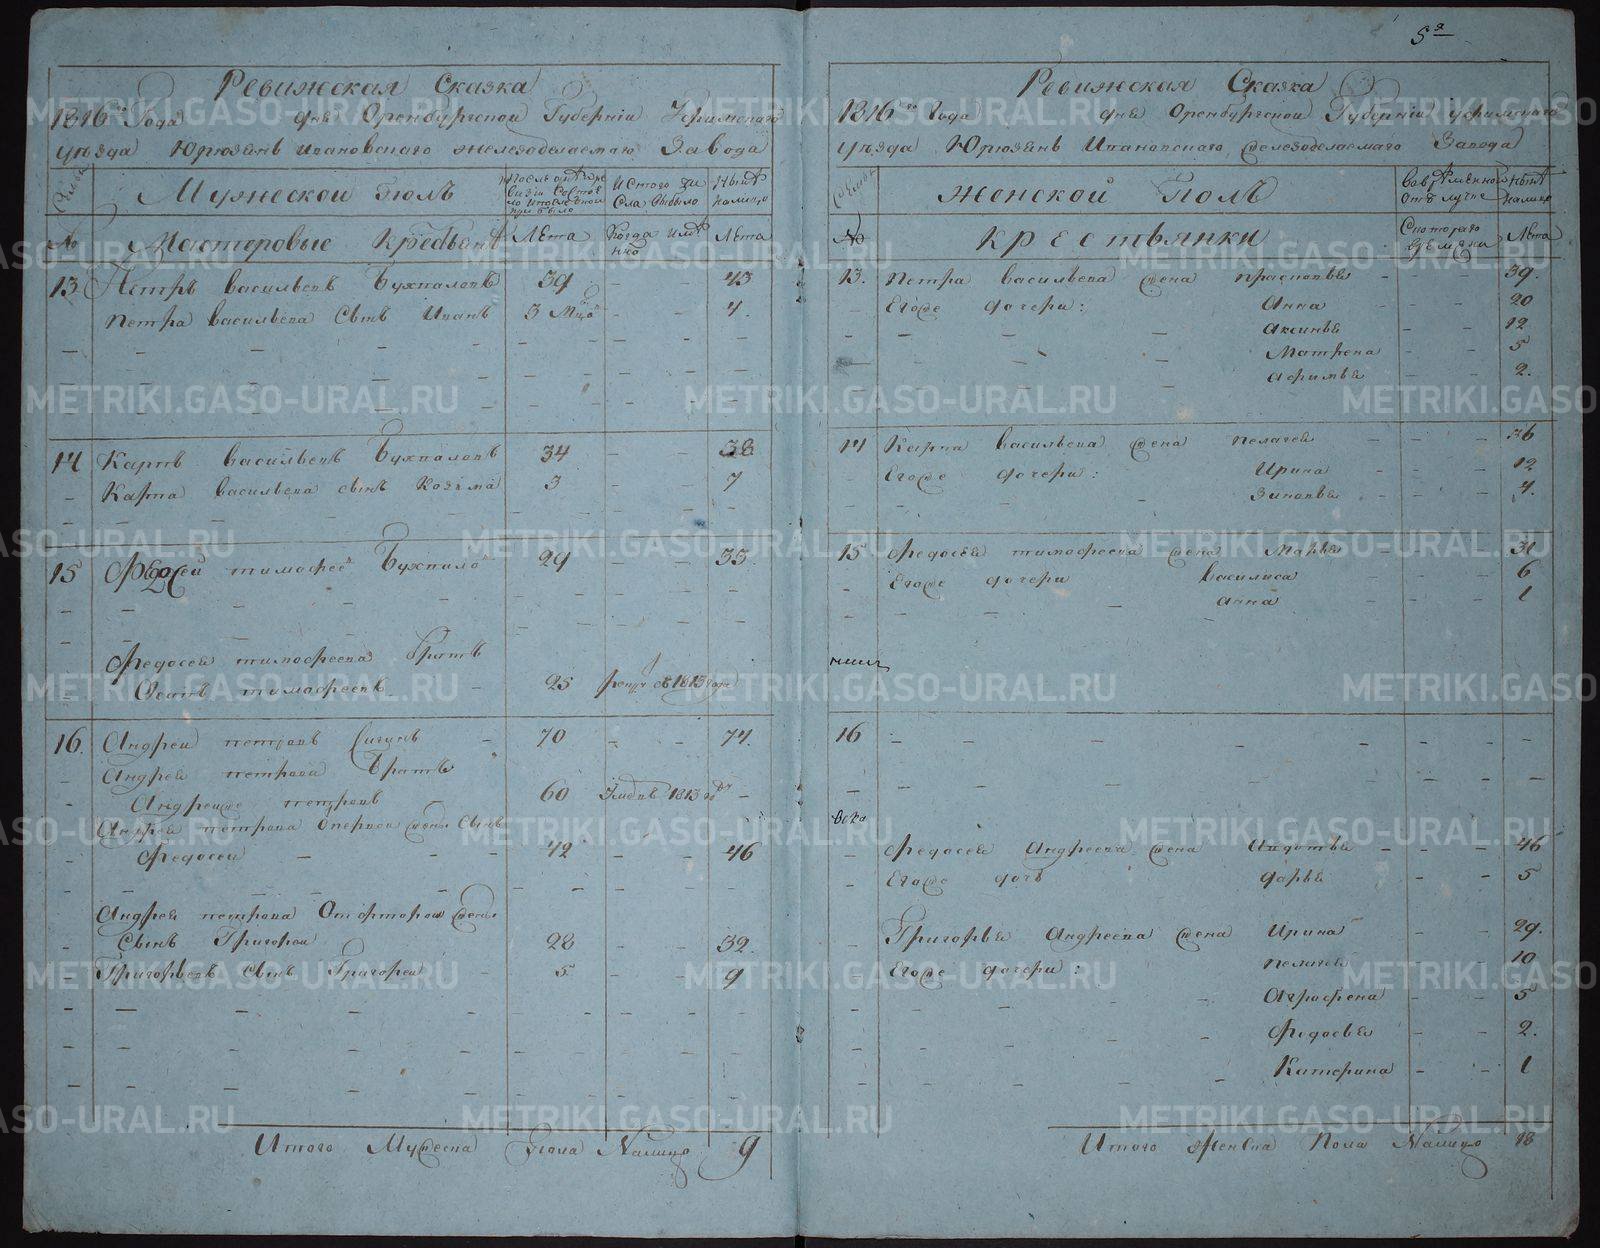 5я
Ревижская Сказка
1816го Года дня Оренбургской Губернiи Уфимскаго
уѣзда Юрюзень Ивановскаго железоделаемаго Завода
Мужеской Полъ
Лѣта
Лѣта
№ Мастеровые Крестьяня
13 Петръ Васильевъ Бухваловъ 39 - - 43
Петра Васильева Сынъ Иванъ 3 Мцо - - 4.
14 Карпъ Васильевъ Бухваловъ 34 - - 38
Карпа Васильева сынъ Козьма 3 - - 7
15 Федосей тимофеевъ Бухвалов 29 - - 33.
Федосея тимофеева Братъ
Осипъ тимофеевъ 25 рекрут съ 1813 года
16. Андреи петровъ Сигунъ 70 - - 74.
Андрея петрова Братъ
Андреиже петровъ 60 Умеръ 1813 году
Андрея петрова Отпервои жены сынъ
Федосеи 42 - - 46
Андрея петрова Отфторои жены
Сынъ Григореи 28 - - 32.
Григорьевъ Сынъ Григореи 5 - - 9
Итого Мужеска Пола Налицо 9
Ревижская Сказка
1816го Года дня Оренбургской Губернiи уфимскаго
уѣзда Юрюзень Ивановскаго железоделаемаго Завода
Женской Полъ
Лѣта
№ Крестьянки
13. Петра васильева жена прасковья - - 39.
Егоже дочери: Анна - 20
аксинья 12
Матрена - - 5
афимья 2.
14 Карпа васильева жена пелагея - - 36
Егоже дочери: Ирина 12
Зиновья - - 4.
15 Федосея тимофеева жена Марья 31
Егоже дочери Василиса 6
анна - 1
16
Федосея Андреева жена Авдотья - - 46
Егоже дочь дарья - - 5
Григорья Андреева жена Ирина 29.
Егоже дочери: пелагея 10
Аграфена 5
Федосья 2.
Катерина - - 1
Итого Женска Пола Налицо 18
METRIKI.GASO-URAL.RU